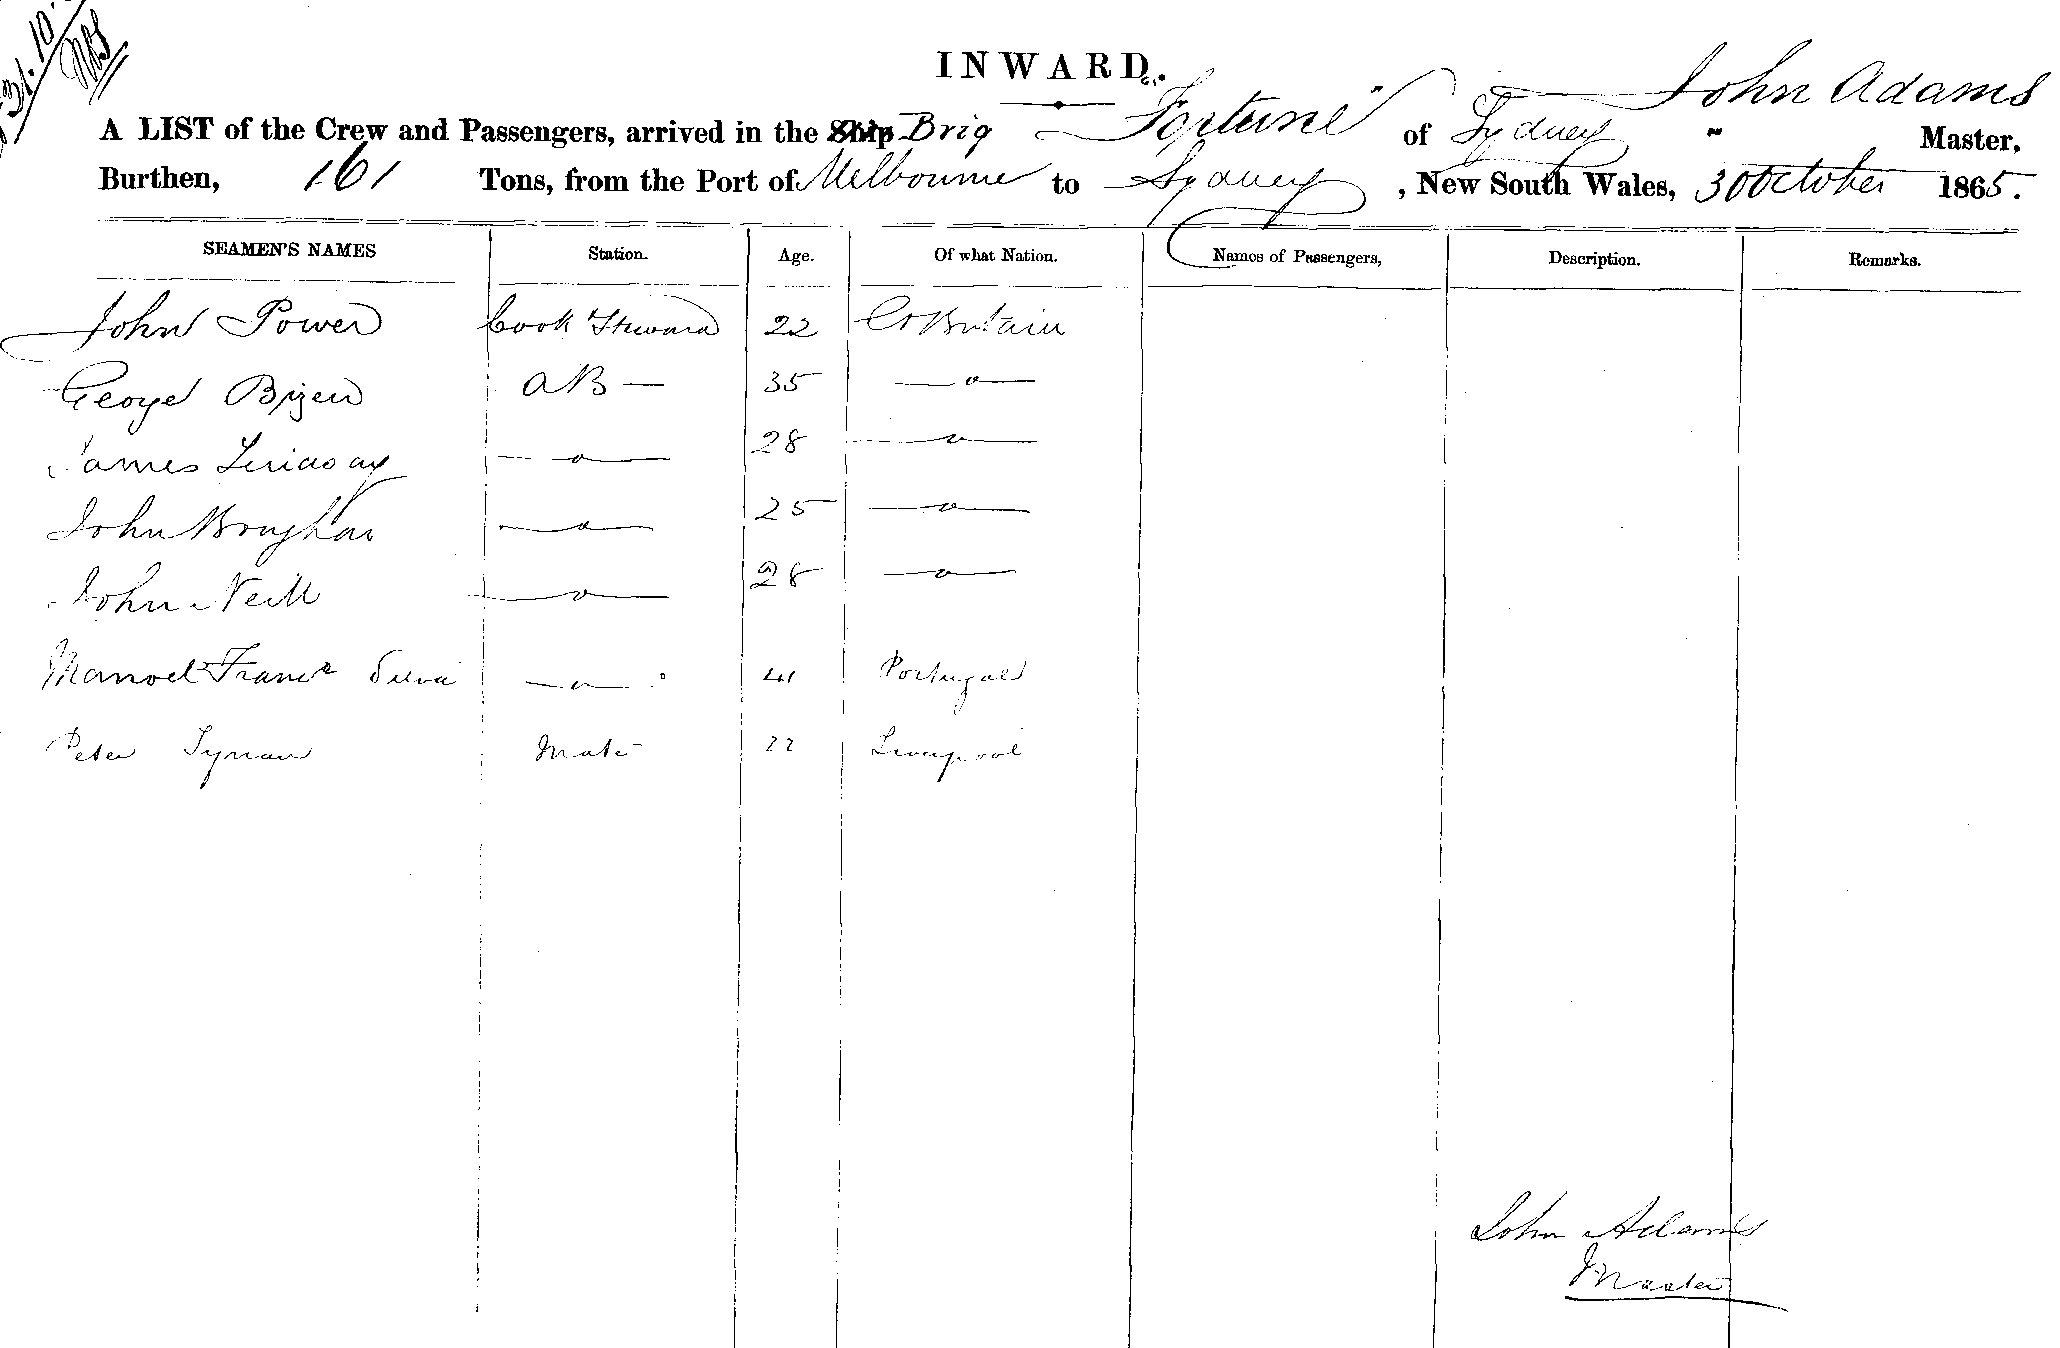 31.10.
INWARD.
A LIST of the Crew and Passengers, arrived in the Ship Brig Fortune of Sydney John Adams Master,
Burthen, 161 Tons, from the Port of Melbourne to Sydney, New South Wales, 30 October 1865.
SEAMEN'S NAMES Station. Age. Of what Nation. Names of Passengers, Description. Remarks.
John Power Cook Steward 22 Gt Britain
George AB — 35 —o—
James Lindsay —o— 28 —o—
John —o— 25 —o—
John Neill —o— 28 —o—
Manoel Silva —o— 41 Portugal
Peter Mate 22 Liverpool
John Adams
Master